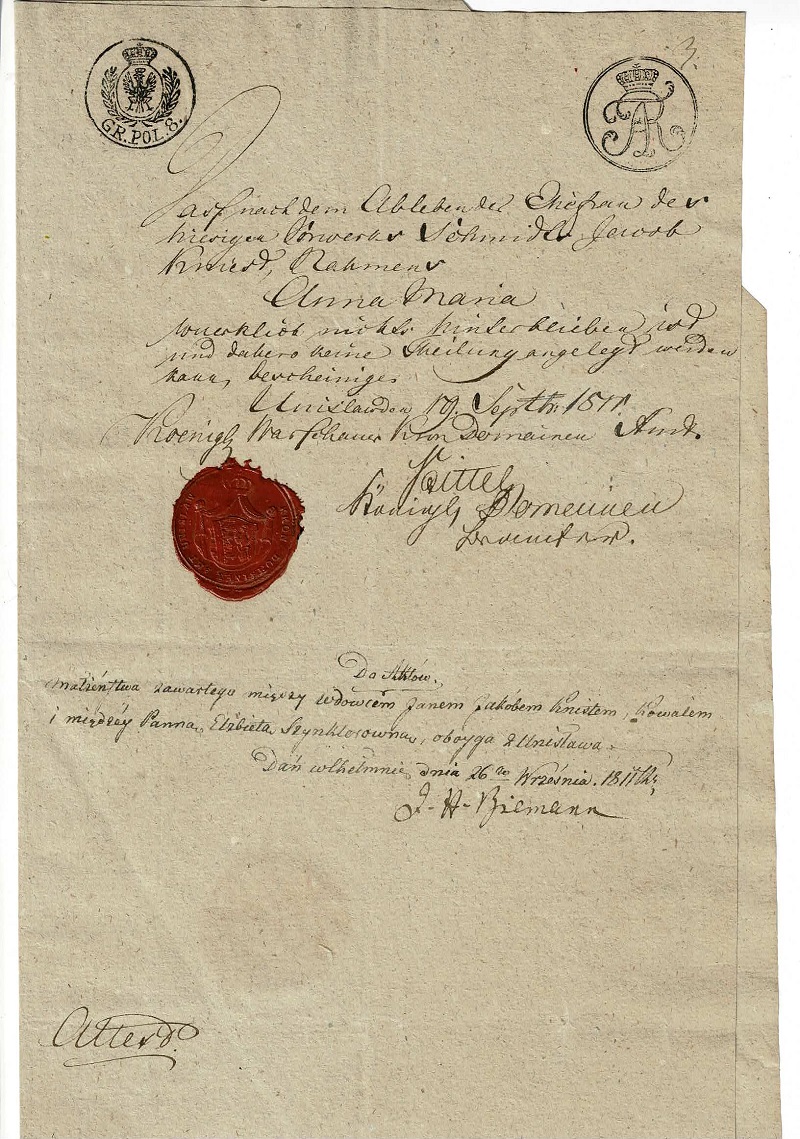 GR. POL. 8.
FAR
3.
Dass nach dem Ableben der Ehefrau des
hiesigen Vorwerks Schmidts Jacob
Kniest, Nahmens
Anna Maria
wuerklich nichts hinterblieben ist
und dahero keine Theilung angelegt werden
kann, bescheinige
Unislaw den 19. Septbr. 1811.
Koenigl. Warschauer Kron Domainen Amt.
Königl. Domeinen
Beamter.
Do Aktów.
małżeństwa zawartego między wdowcem Janem Jakóbem Knistem, Kowalem
i między Panną Elżbietą Szynklerowną, oboyga z Unisława.
dnia 26go Września. 1811
J. H. Biemann
Attest.